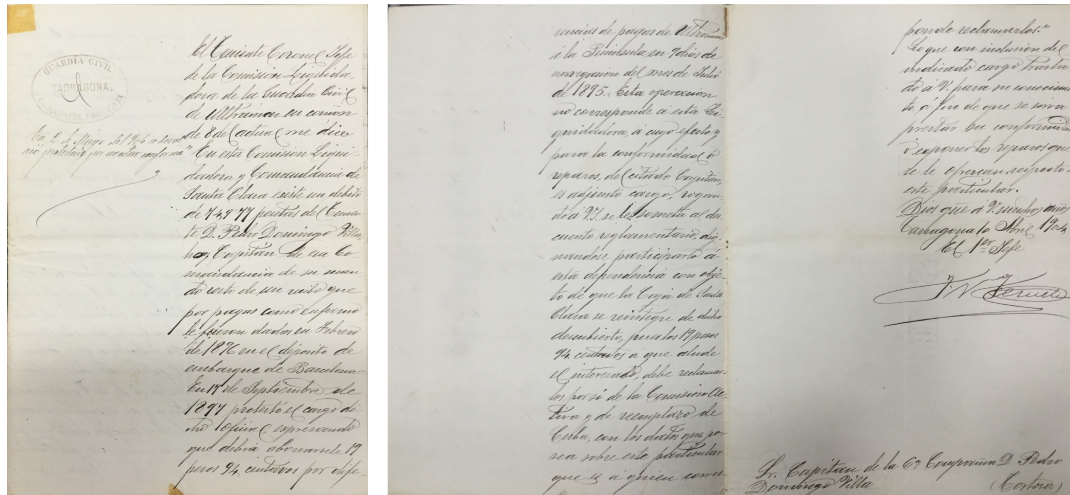 GUARDIA CIVIL
TARRAGONA.
El Teniente Coronel Jefe
de la Comisión Liquida-
dora de la Guardia Civil
de Ultramar en
8 del actual me dice
En esta Comisión Liqui-
dadora y Comandancia de
Santa Clara existe un debito
de 749'77 pesetas del Tenien-
te D. Pedro Domingo Villa,
hoy Capitán de esa Co-
mandancia de su
do resto de un recibo que
por pagas como enfermo
le fueron dadas en Febrero
de 1896 en el depósito de
embarque de Barcelona
En 17 de Septiembre de
1897 protestó el cargo di-
cho Oficial expresando
que debia abonarsele 19
pesos 94 centavos por dife-
rencias de pagas de Ultramar
á la Península en 9 dias de
navegación del mes de Julio
de 1895. Esta operacion
no corresponde á esta Li-
quidadora, á cuyo efecto y
para la conformidad ó
reparos, del citado Capitan,
es adjunto cargo, rogan-
do á V.S. se le someta al des-
cuento reglamentario, dig-
nandose participarlo á
esta dependencia con obje-
to de que la Caja de Santa
Clara se reintegre de dicho
descubierto, pues los 19 pesos
94 centavos a que alude
el interesado, debe reclamar-
los por sí de la Comisión Ac-
tiva y de reemplazo de
Cuba, con los datos que po-
sea sobre este particular
que es á quien corres-
ponde reclamarlos."
Lo que con inclusión del
indicado cargo trasla-
do á V. para su conocimien-
to á fin de que se sirva
prestar su conformidad
ó exponer los reparos que
se le ofrezcan respecto
este particular.
Dios gue á V. muchos años
Tarragona 10 Abril 1904
El 1er Jefe
Sr. Capitan de la 6ª Compañia D. Pedro
Domingo Villa (Tortosa)